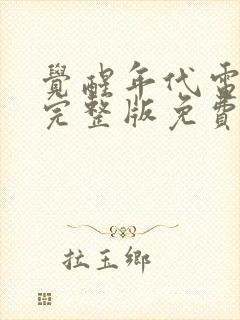 覺醒年代電
完整版免費
拉玉鄉